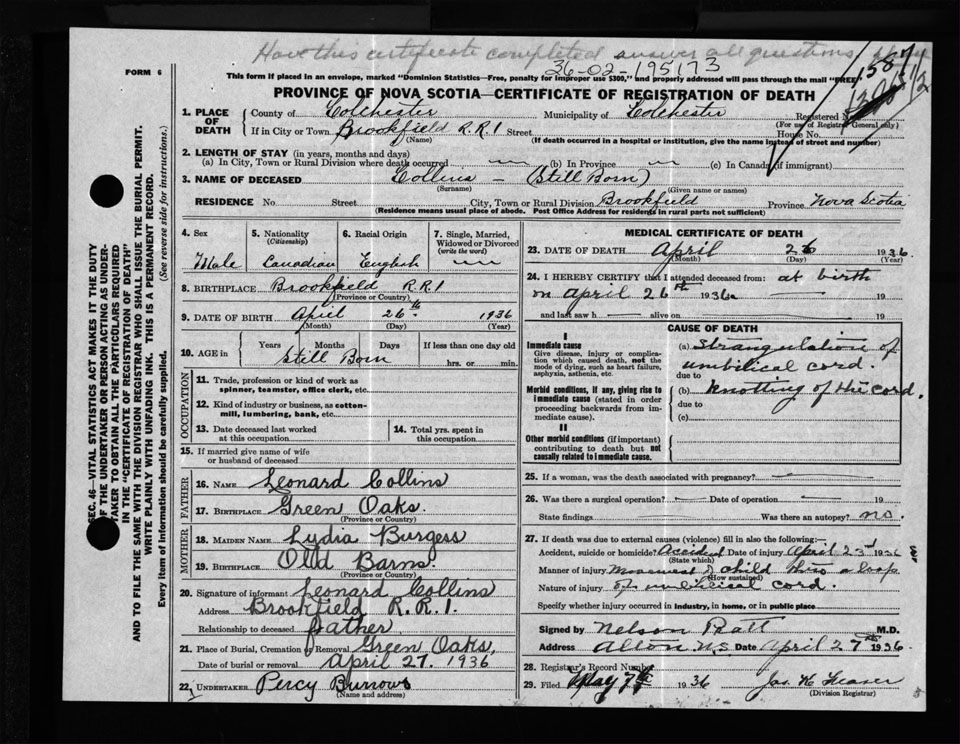 Have this certificate completed answer all questions
36-02-195173
FORM 6
This form if placed in an envelope, marked "Dominion Statistics—Free, penalty for improper use $300," and properly addressed will pass through the mail "FREE"
PROVINCE OF NOVA SCOTIA—CERTIFICATE OF REGISTRATION OF DEATH
1. PLACE OF DEATH
County of Colchester Municipality of Colchester Registered No.
(For use of Registrar General only)
If in City or Town Brookfield R.R.1 Street House No.
(Name) (If death occurred in a hospital or institution, give the name instead of street and number)
2. LENGTH OF STAY (in years, months and days)
(a) In City, Town or Rural Division where death occurred (b) In Province (c) In Canada (if immigrant)
3. NAME OF DECEASED Collins - (Still Born)
(Surname) (Given name or names)
RESIDENCE No Street City, Town or Rural Division Brookfield Province Nova Scotia
(Residence means usual place of abode. Post Office Address for residents in rural parts not sufficient)
4. Sex 5. Nationality (Citizenship) 6. Racial Origin 7. Single, Married, Widowed or Divorced (write the word)
Male Canadian English
8. BIRTHPLACE Brookfield R.R.1
(Province or Country)
9. DATE OF BIRTH April 26th 1936
(Month) (Day) (Year)
10. AGE in Years Months Days If less than one day old
Still Born hrs. or min.
OCCUPATION
11. Trade, profession or kind of work as spinner, teamster, office clerk, etc.
12. Kind of industry or business, as cotton-mill, lumbering, bank, etc.
13. Date deceased last worked at this occupation 14. Total yrs. spent in this occupation
15. If married give name of wife or husband of deceased
FATHER
16. NAME Leonard Collins
17. BIRTHPLACE Green Oaks.
(Province or Country)
MOTHER
18. MAIDEN NAME Lydia Burgess
19. BIRTHPLACE Old Barns.
(Province or Country)
20. Signature of informant Leonard Collins
Address Brookfield R.R.1.
Relationship to deceased father
21. Place of Burial, Cremation or Removal Green Oaks,
Date of burial or removal April 27, 1936
22. UNDERTAKER Percy Burrows
(Name and address)
MEDICAL CERTIFICATE OF DEATH
23. DATE OF DEATH April 26 1936
(Month) (Day) (Year)
24. I HEREBY CERTIFY that I attended deceased from: at birth
on April 26th 1936 19
and last saw h alive on 19
CAUSE OF DEATH
I
Immediate cause
Give disease, injury or complication which caused death, not the mode of dying, such as heart failure, asphyxia, asthenia, etc.
(a) Strangulation of
umbilical cord.
due to
Morbid conditions, if any, giving rise to immediate cause (stated in order proceeding backwards from immediate cause).
(b) Knotting of the cord.
due to
(c)
II
Other morbid conditions (if important) contributing to death but not causally related to immediate cause.
25. If a woman, was the death associated with pregnancy?
26. Was there a surgical operation? Date of operation 19
State findings Was there an autopsy? no.
27. If death was due to external causes (violence) fill in also the following:—
Accident, suicide or homicide? Accident Date of injury April 23d 1936
(State which)
Manner of injury Movement of child thro a loop
(How sustained)
Nature of injury of umbilical cord.
Specify whether injury occurred in industry, in home, or in public place
Signed by Nelson Pratt M.D.
Address Alton N.S Date April 27th 1936.
28. Registrar's Record Number
29. Filed May 7th 1936 Jas. H.
(Division Registrar)
SEC. 46—VITAL STATISTICS ACT MAKES IT THE DUTY
OF THE UNDERTAKER OR PERSON ACTING AS UNDER-
TAKER TO OBTAIN ALL THE PARTICULARS REQUIRED
IN THE "CERTIFICATE OF REGISTRATION OF DEATH"
AND TO FILE THE SAME WITH THE DIVISION REGISTRAR WHO SHALL ISSUE THE BURIAL PERMIT.
WRITE PLAINLY WITH UNFADING INK. THIS IS A PERMANENT RECORD.
Every item of information should be carefully supplied. (See reverse side for instructions.)